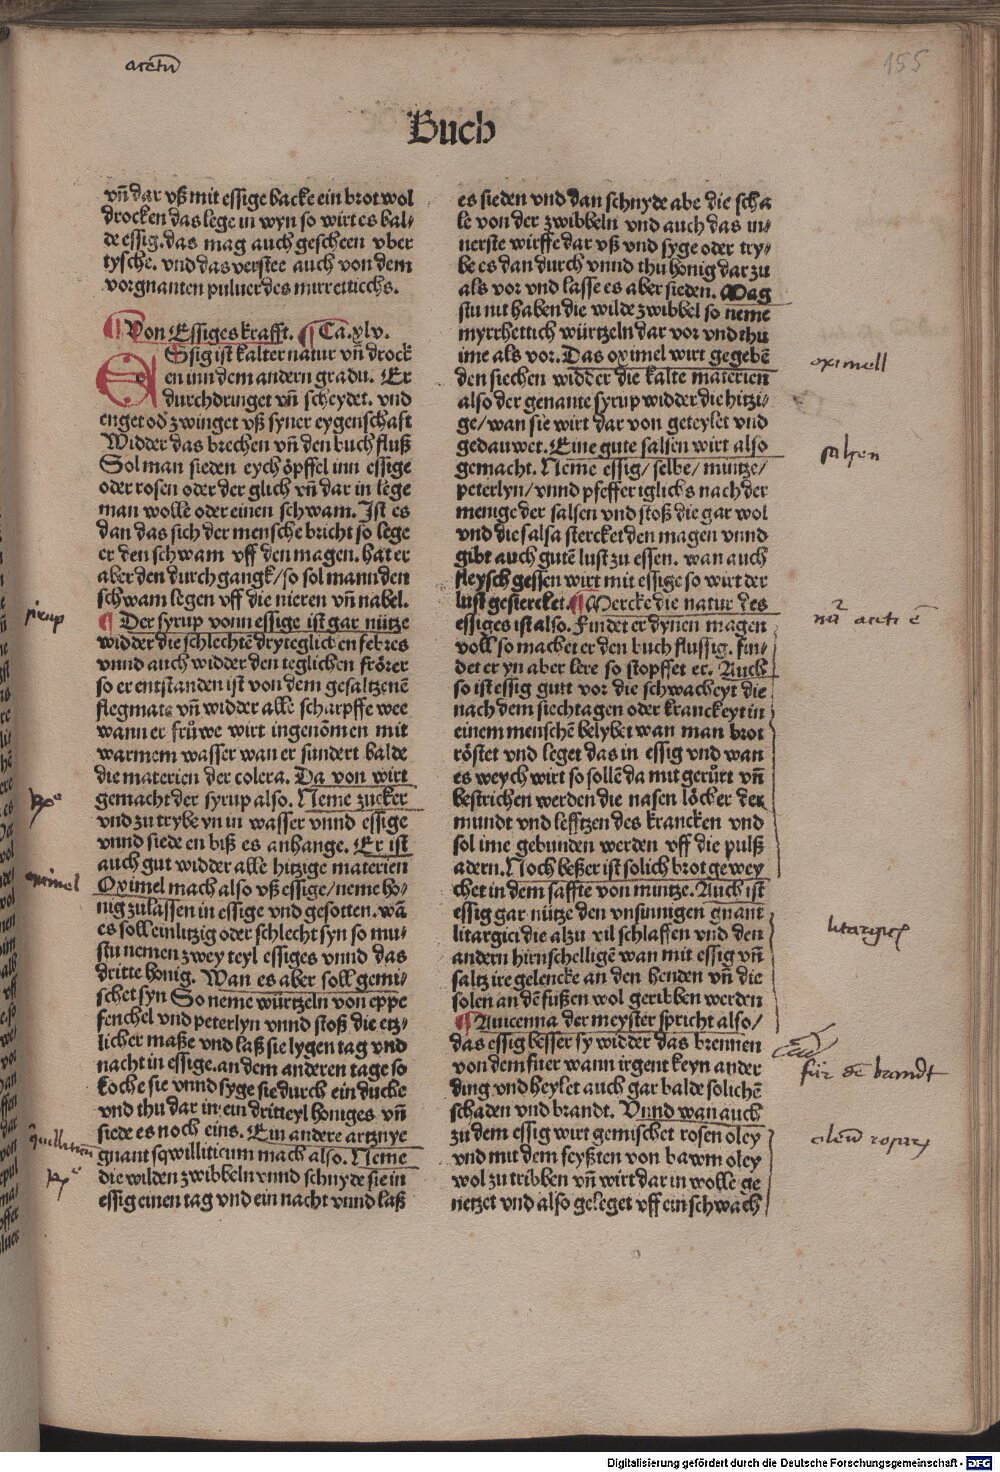 acetũ
155
Buch
vñ dar vß mit essige backe ein brot wol
drocken das lege in wyn so wirt es bal⸗
de essig. das mag auch gescheen vber
tysche. vnd das verstee auch von dem
vorgnanten puluer des mirrettichs.
¶ Von Essiges krafft. ¶ Ca. xlv.
ESsig ist kalter natur vñ drock
en inn dem andern gradu. Er
durchdringet vñ scheydet. vnd
enget od̕ zwinget vß syner eygenschaft
Widder das brechen vñ den buch fluß
Sol man sieden eych öpffel inn essige
oder rosen oder der glich vñ dar in lege
man wolle oder einen schwam. Ist es
dan das sich der mensche bricht so lege
er den schwam vff den magen. hat er
aber den durchgangk/so sol mann den
schwam legen vff die nieren vñ nabel.
¶ Der syrup vonn essige ist gar nütze
widder die schlechtẽ dryteglichen febres
vnnd auch widder den teglichen frörer
so er entstanden ist von dem gesaltzenẽ
flegmate vñ widder alle scharpffe wee
wann er frůwe wirt ingenõmen mit
warmem wasser wan er sundert balde
die materien der colera. Da von wirt
gemacht der syrup also. Neme zucker
vnd zu trybe yn in wasser vnnd essige
vnnd siede en biß es anhange. Er ist
auch gut widder alle hitzige materien
Oximel mach also vß essige/neme ho⸗
nig zulassen in essige vnd gesotten. wã
es soll einlitzig oder schlecht syn so mu⸗
stu nemen zwey teyl essiges vnnd das
dritte honig. Wan es aber soll gemi⸗
schet syn So neme würtzeln von eppe
fenchel vnd peterlyn vnnd stoß die etz⸗
licher maße vnd laß sie lygen tag vnd
nacht in essige. an dem anderen tage so
koche sie vnnd syge sie durch ein duche
vnd thu dar in ein dritteyl honiges vñ
siede es noch eins. Ein andere artznye
gnant sqwilliticum mach also. Neme
die wilden zwibbeln vnnd schnyde sie in
essig einen tag vnd ein nacht vnnd laß
es sieden vnd dan schnyde abe die scha
le von der zwibbeln vnd auch das in⸗
nerste wirffe dar vß vnd syge oder try⸗
be es dan durch vnnd thu honig dar zu
als vor vnd lasse es aber sieden. Mag
stu nit haben die wilde zwibbel so neme
myrrhettich würtzeln dar vor vnd thu
ime als vor. Das oximel wirt gegebẽ
den siechen widder die kalte materien
also der genante syrup widder die hitzi⸗
ge/wan sie wirt dar von geteylet vnd
gedauwet. Eine gute salsen wirt also
gemacht. Neme essig/selbe/müntze/
peterlyn/vnnd pfeffer iglichs nach der
menige der salsen vnd stoß die gar wol
vnd die salsa stercket den magen vnnd
gibt auch gutẽ lust zu essen. wan auch
fleysch gessen wirt mit essige so wirt der
lust gestercket. ¶ Mercke die natur des
essiges ist also. Findet er dynen magen
voll so machet er den buch flussig. fin⸗
det er yn aber lere so stopffet er. Auch
so ist essig gutt vor die schwacheyt die
nach dem siechtagen oder kranckeyt in
einem menschẽ belybet wan man brot
röstet vnd leget das in essig vnd wan
es weych wirt so sollẽ da mit gerůrt vñ
bestrichen werden die nasen löcher der
mundt vnd lefftzen des krancken vnd
sol ime gebunden werden vff die pulß
adern. Noch beßer ist solich brot gewey
chet in dem saffte von mintze. Auch ist
essig gar nütze den vnsinnigen gnant
litargici die alzu vil schlaffen vnd den
andern hirnschelligẽ wan mit essig vñ
saltz ire gelencke an den henden vñ die
solen an dẽ fußen wol geribben werden
¶ Auicenna der meyster spricht also/
das essig besser sy widder das brennen
von dem fuer wann irgent keyn ander
ding vnd heylet auch gar balde solichẽ
schaden vnd brandt. Vnnd wan auch
zu dem essig wirt gemischet rosen öley
vnd mit dem feyßten von bawm oley
wol zu tribben vñ wirt dar in wolle ge
netzet vnd also geleget vff ein schwach
sirup
oximel
oximell
salsen
für dẽ brandt
Digitalisierung gefördert durch die Deutsche Forschungsgemeinschaft - DFG